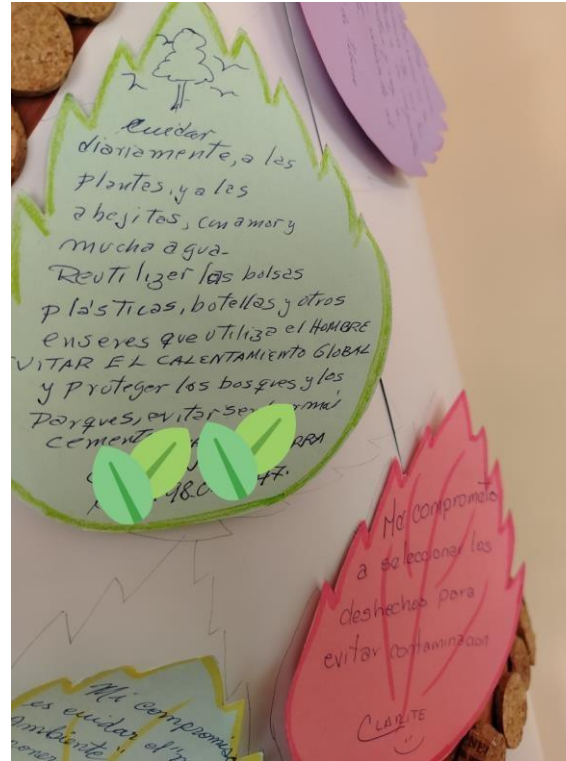 cuidar
diariamente, a las
plantas, y a las
abejitas, con amor y
mucha agua-
Reutilizar las bolsas
plásticas, botellas y otros
enseres que utiliza el HOMBRE
VITAR EL CALENTAMIENTO GLOBAL
y Proteger los bosques y los
Parques, evitar
cement
98.0 47.
Me comprometo
a seleccionar los
deshechos para
evitar contaminacion
CLARITE
Mi compromiso
es cuidar el
Ambiente